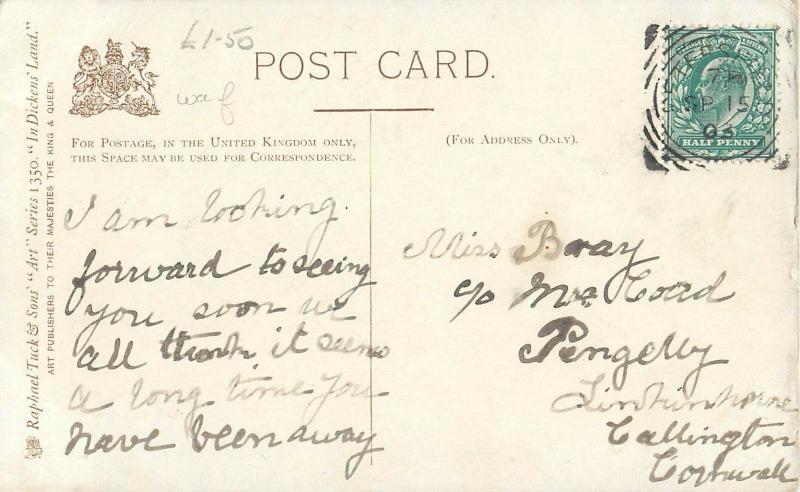 £1-50
POST CARD.
FOR POSTAGE, IN THE UNITED KINGDOM ONLY,
THIS SPACE MAY BE USED FOR CORRESPONDENCE.
(FOR ADDRESS ONLY).
Raphael Tuck & Sons' "Art" Series 1350. "In Dickens' Land."
ART PUBLISHERS TO THEIR MAJESTIES THE KING & QUEEN
I am looking
forward to seeing
you soon we
all think it seems
a long time you
have been away
Miss Bray
c/o Mrs Coad
Pengelly
Linkinhorne
Callington
Cornwall
SP 15
03
HALF PENNY